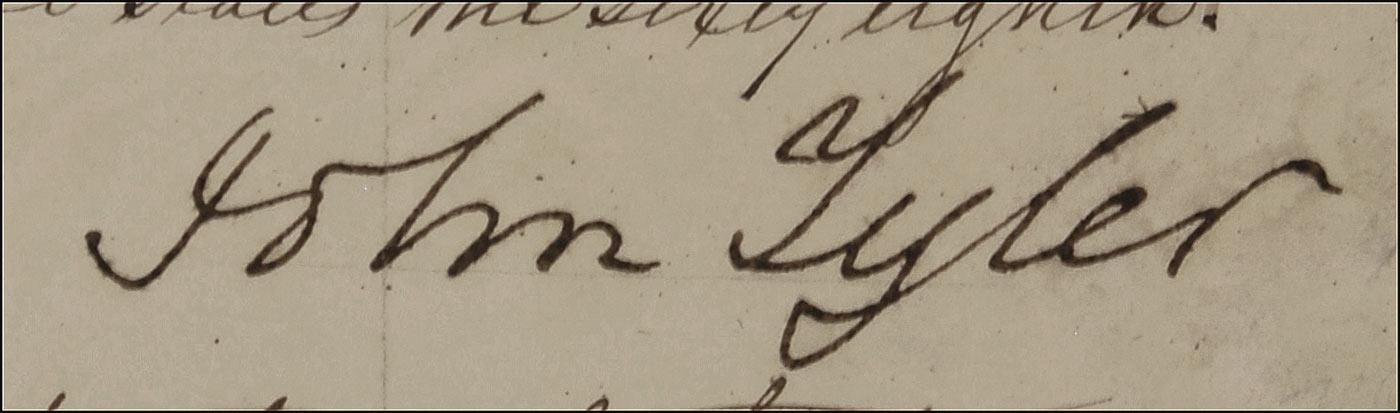 States the sixty eighth.
John Tyler